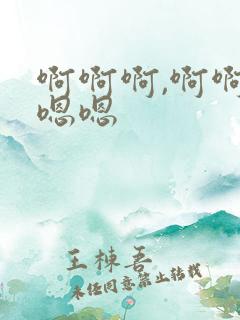 啊啊啊,啊啊
嗯嗯
王栋吾
未经同意禁止转载